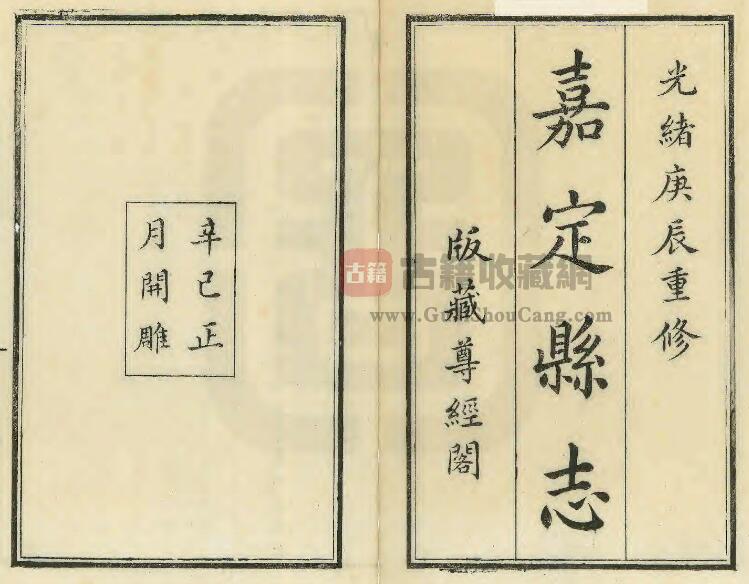 光緒庚辰重修
嘉定縣志
版藏尊經閣
辛巳正
月開雕
古籍
古籍收藏網
www.GuJiShouCang.com